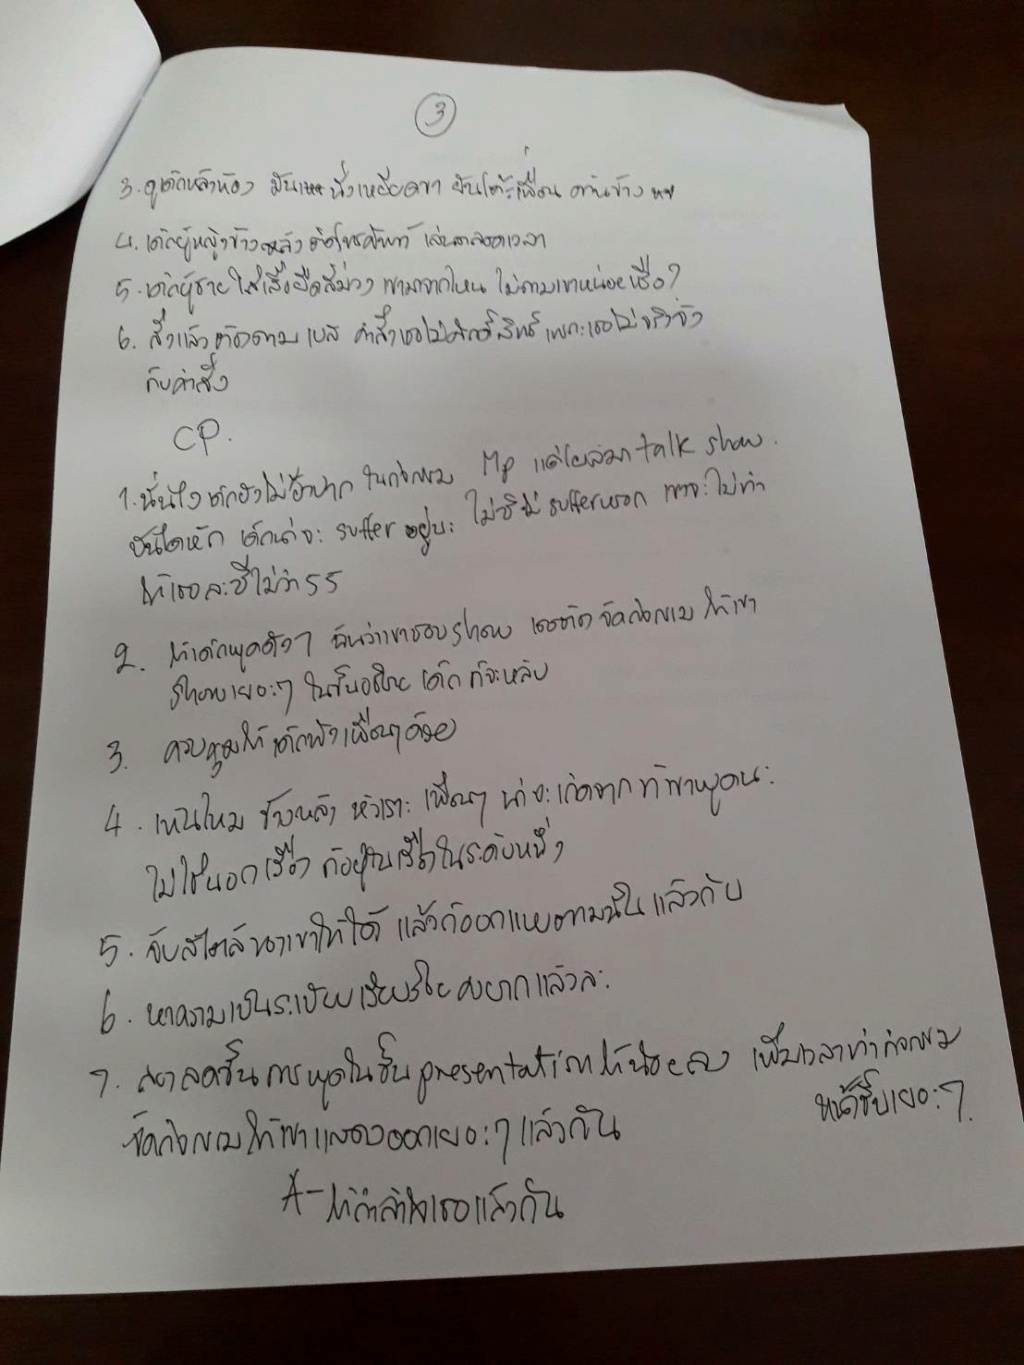 3
3. ดูเด็กหลังห้อง มันเหอ นั่งเหยียดขา ยันโต๊ะเพื่อน ด้านข้าง
4. เด็กผู้หญิงข้างหลัง ติดโทรศัพท์ เล่นตลอดเวลา
5. เด็กผู้ชาย ใส่เสื้อยืดสีม่วง เขามาจากไหน ไม่ถามเขาหน่อยหรือ?
6. สั่งแล้ว ต้องตาม เบส คำสั่งเธอไม่ศักดิ์สิทธิ์ เพราะเธอไม่จริงจัง
กับคำสั่ง
CP.
1. นั่นไง เด็กยังไม่อ้าปาก ในกิจกรรม MP แต่โผล่มา talk show.
บันไดหัก เด็กน่าจะ suffer อยู่นะ ไม่ซิ ไม่ suffer หรอก เขาจะไม่ทำ
ให้เธอละซิไม่ว่า 55
2. ให้เด็กพูดดังๆ ฉันว่าเขาชอบ show เธอต้องจัดกิจกรรม ให้เขา
show เยอะๆ ในขั้นอธิบาย เด็ก ก็จะหลับ
3. ควบคุมให้ เด็กฟังเพื่อนๆ ด้วย
4. เห็นไหม ข้างหลัง หัวเราะ เพื่อนๆ น่าจะเกิดจาก ที่เขาพูดนะ
ไม่ใช่นอกเรื่อง ก็อยู่ในเรื่องในระดับหนึ่ง
5. จับสไตล์ของเขาให้ได้ แล้วก็ออกแบบตามนั้น แล้วกัน
6. หาความเป็นระเบียบเรียบร้อย คงยากแล้วละ
7. ลดขั้น การพูดในขั้น presentation ให้น้อยลง เพิ่มเวลาทำกิจกรรม
หน้าชั้นเยอะๆ.
จัดกิจกรรมให้เขาแสดงออกเยอะๆ แล้วกัน
A- ให้กำลังใจเธอแล้วกัน